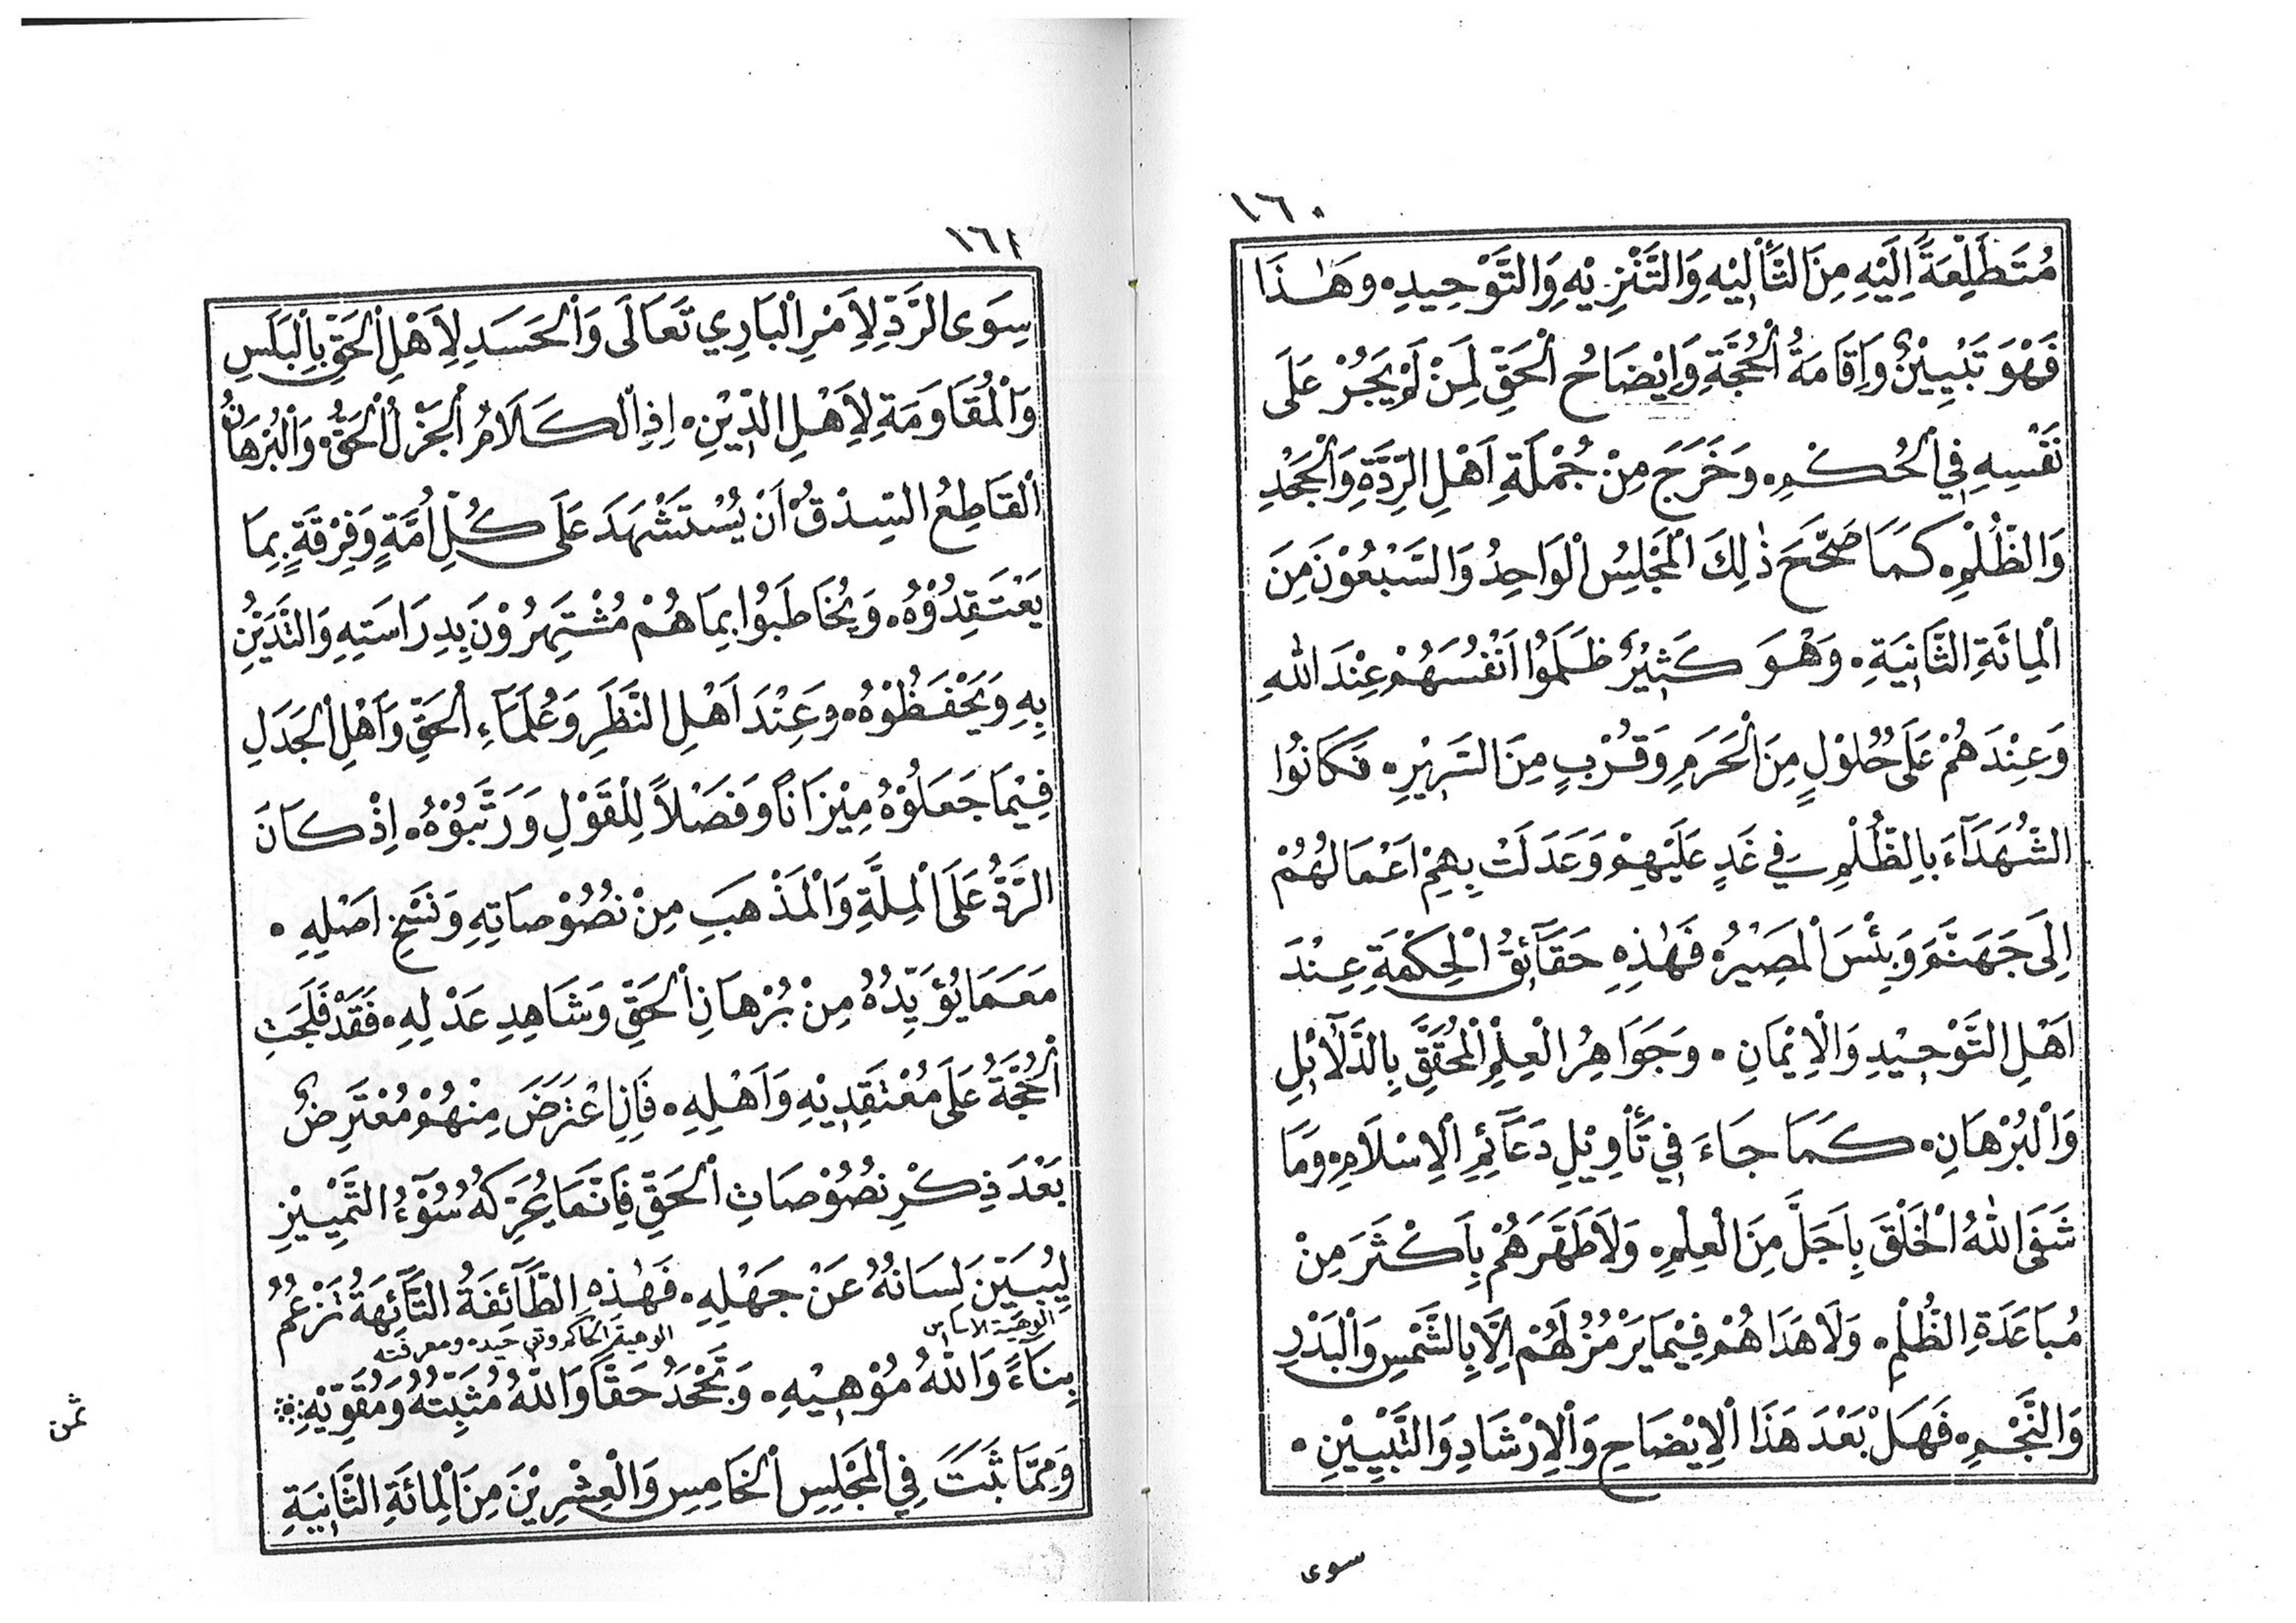 ١٦٠
مُتَطَلِّعَةً اِلَيْهِ مِنَ التَّأْلِيْهِ وَالتَّنْزِيْهِ وَالتَّوْحِيدِ۰ وَهٰذَا
فَهْوَ تَبْيِيْنٌ وَاِقَامَةُ الْحُجَّةِ وَاِيْضَاحُ الْحَقِّ لِمَنْ لَمْ يَجُرْ عَلَى
نَفْسِهِ فِي الْحُكْمِ۰ وَخَرَجَ مِنْ جُمْلَةِ اَهْلِ الرِّدَّةِ وَالْجَحْدِ
وَالظُّلْمِ۰ كَمَا صَحَّحَ ذٰلِكَ الْمَجْلِسُ الْوَاحِدُ وَالسَّبْعُوْنَ مِنَ
الْمِائَةِ الثَّانِيَةِ۰ وَهْوَ كَثِيْرٌ ظَلَمُوا اَنْفُسَهُمْ عِنْدَ اللهِ
وَعِنْدَهُمْ عَلَى حُلُوْلٍ مِنَ الْحَرَمِ وَقُرْبٍ مِنَ السَّرِيْرِ۰ فَكَانُوا
الشُّهَدَآءَ بِالظُّلْمِ فِي غَدٍ عَلَيْهِمْ وَعَدَلَتْ بِهِمْ اَعْمَالُهُمْ
اِلَى جَهَنَّمَ وَبِئْسَ الْمَصِيْرُ۰ فَهٰذِهِ حَقَآئِقُ الْحِكْمَةِ عِنْدَ
اَهْلِ التَّوْحِيْدِ وَالْاِيْمَانِ۰ وَجَوَاهِرُ الْعِلْمِ الْمُحَقَّقِ بِالدَّلَآئِلِ
وَالْبُرْهَانِ۰ كَمَا جَاءَ فِي تَأْوِيْلِ دَعَآئِمِ الْاِسْلَامِ۰ وَمَا
شَفَى اللهُ الْخَلْقَ بِاَجَلَّ مِنَ الْعِلْمِ۰ وَلَا طَهَّرَهُمْ بِاَكْثَرَ مِنْ
مُبَاعَدَةِ الظُّلْمِ۰ وَلَا هَدَاهُمْ فِيْمَا يَرْمُزُ لَهُمْ اِلَّا بِالشَّمْسِ وَالْبَدْرِ
وَالنَّجْمِ۰ فَهَلْ بَعْدَ هَذَا الْاِيْضَاحِ وَالْاِرْشَادِ وَالتَّبْيِيْنِ۰
سوى
١٦١
سِوَى الرَّدِّ لِاَمْرِ الْبَارِي تَعَالَى وَالْحَسَدِ لِاَهْلِ الْحَقِّ بِالْبَلَسِ
وَالْمُقَاوَمَةِ لِاَهْلِ الدِّيْنِ۰ اِذِ الْكَلَامُ الْجَزْلُ الْحَقُّ۰ وَالْبُرْهَانُ
الْقَاطِعُ السِّدْقُ اَنْ يُسْتَشْهَدَ عَلَى كُلِّ اُمَّةٍ وَفِرْقَةٍ بِمَا
يَعْتَقِدُوْهُ۰ وَيُخَاطَبُوا بِمَا هُمْ مُشْتَهِرُوْنَ بِدِرَاسَتِهِ وَالتَّدَيُّنِ
بِهِ وَيَحْفَظُوْهُ۰ وَعِنْدَ اَهْلِ النَّظَرِ وَعُلَمَآءِ الْحَقِّ وَاَهْلِ الْجَدَلِ
فِيْمَا جَعَلُوْهُ مِيْزَانًا وَفَصْلًا لِلْقَوْلِ وَرَتَّبُوْهُ۰ اِذْ كَانَ
الرَّدُّ عَلَى الْمِلَّةِ وَالْمَذْهَبِ مِنْ نُصُوْصَاتِهِ وَنَسْخِ اَصْلِهِ۰
مَعَمَا يُؤَيِّدُهُ مِنْ بُرْهَانِ الْحَقِّ وَشَاهِدِ عَدْلِهِ۰ فَقَدْ فَلَجَتِ
الْحُجَّةُ عَلَى مُعْتَقِدِيْهِ وَاَهْلِهِ۰ فَاِنِ اعْتَرَضَ مِنْهُمْ مُعْتَرِضٌ
بَعْدَ ذِكْرِ نُصُوْصَاتِ الْحَقِّ فَاِنَّمَا يُحَرِّكُهُ سُوْٓءُ التَّمْيِيْزِ
لِيُبَيِّنَ لِسَانُهُ عَنْ جَهْلِهِ۰ فَهٰذِهِ الطَّآئِفَةُ التَّآئِهَةُ تَزْعُمُ
الوهية الاساس الوهية الحاكم وتوحيده ومعرفته
بِنَآءً وَاللهُ مُوْهِيْهِ۰ وَتَجْحَدُ حَقًّا وَاللهُ مُثَبِّتُهُ وَمُقَوِّيْهِ۰
وَمِمَّا ثَبَتَ فِي الْمَجْلِسِ الْخَامِسِ وَالْعِشْرِيْنَ مِنَ الْمِائَةِ الثَّانِيَةِ
ثمن